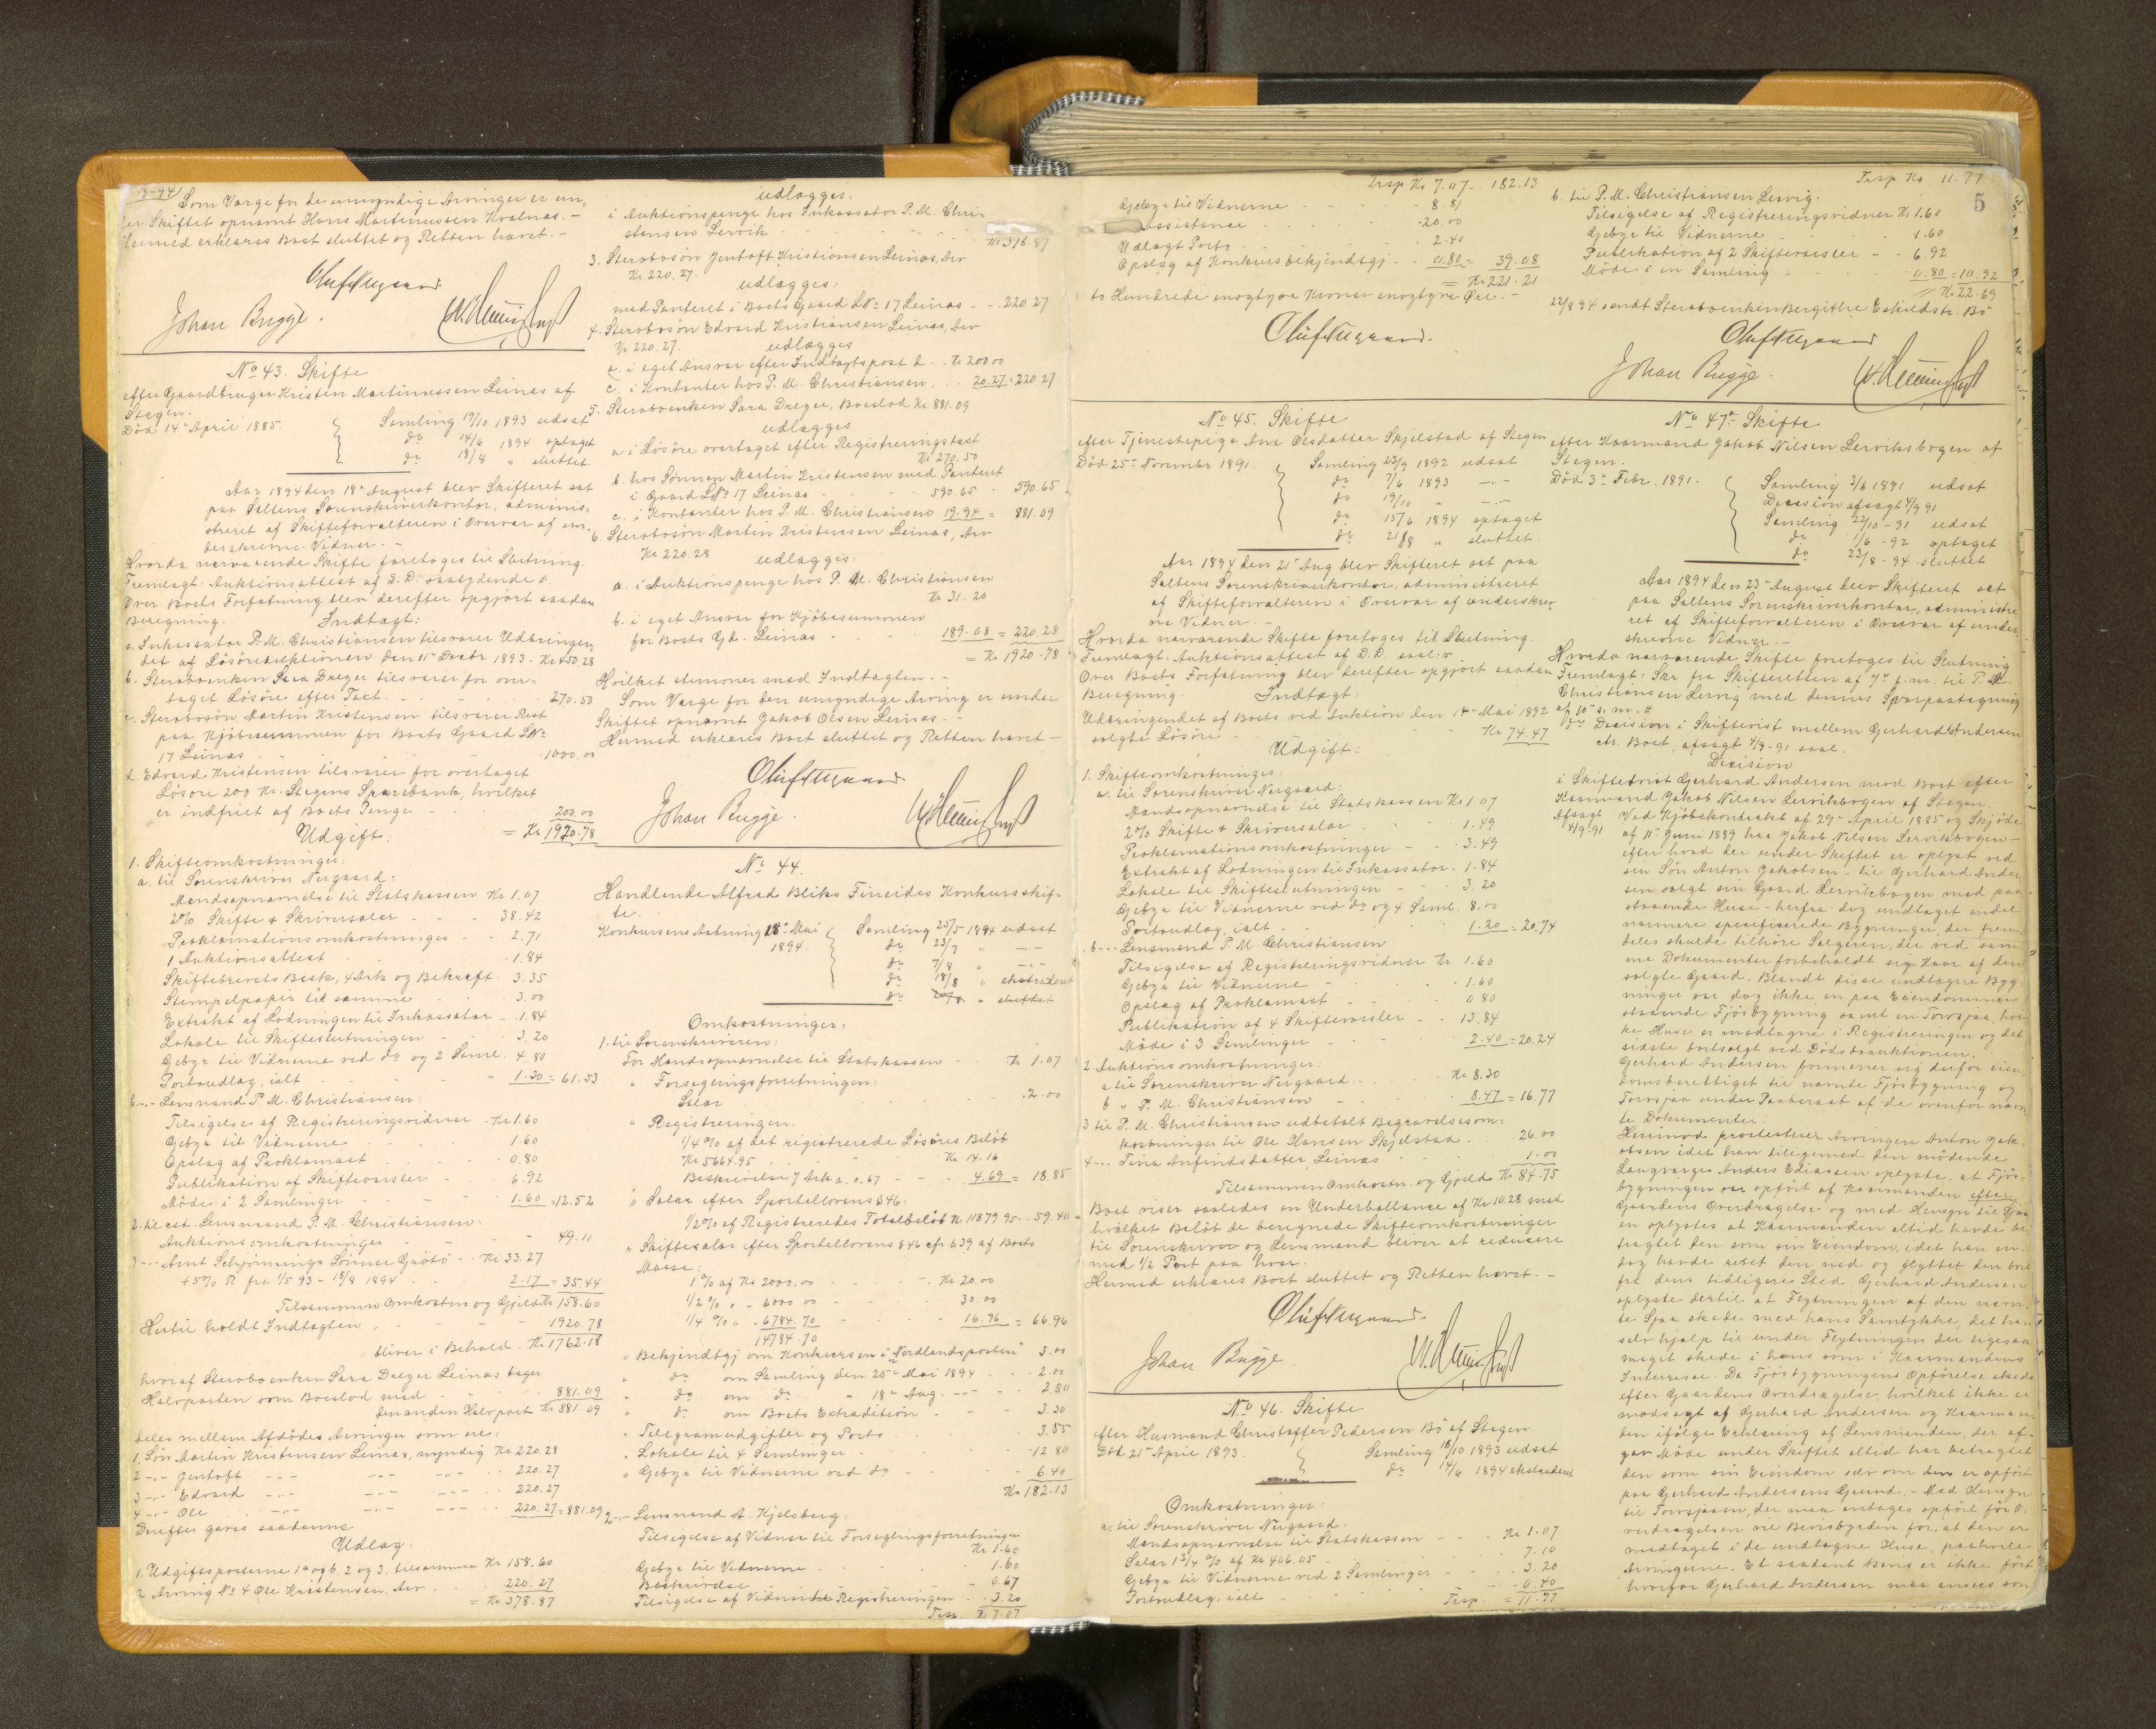 3-94) Som Værge for de umyndige Arvinger er un-
der Skiftet opnævnt Hans Martinussen Kvalnæs. -
Hermed erklæres Boet sluttet og Retten hævet. -
Johan Bugge.
No 43. Skifte
efter Gaardbruger Kristen Martinussen Leinæs af
Stegen.
Død 14de April 1885.
Samling 19/10 1893 udsat
do 14/6 1894 optaget
do 18/8 " sluttet.
Aar 1894 den 18de August blev Skifteret sat
paa Saltens Sorenskriverkontor, adminis-
streret af Skifteforvalteren i Overvær af un-
derskrevne Vidner. -
Hvorda nærværende Skifte foretoges til Slutning.
Fremlagt: Auktionsattest af D.D. saalydende #.
Over Boets Forfatning blev derefter opgjort saadan
Beregning.
Indtægt:
a. Inkassator P. M. Christiansen tilsvarer Udbringen-
det af Løsøreauktionen den 11te Decbr 1893 - Kr 450.28
b. Sterboenken Sara Dreyer tilsvarer for over-
taget Løsøre efter Taxt - 270.50
c. Sterbosøn Martin Kristensen tilsvarer Rest
paa Kjøbesummen for Boets Gaard LNo
17 Leinæs - 1000.00
d. Edvard Kristensen tilsvarer for overtaget
Løsøre 200 Kr. Stegens Sparebank, hvilket
er indfriet af Boets Penge - 200.00
= Kr 1920.78
Udgift:
1. Skifteomkostninger:
a. til Sorenskriver Nergaard:
Mandsopnævnelse til Statskassen Kr 1.07
2% Skifte & Skriversalær - 38.42
Proklamationsomkostninger - 2.71
1 Auktionsattest - 1.84
Skiftebrevets Besk, 4 Ark og Bekræft. 3.35
Stempelpapir til samme - 3.00
Extrakt af Lodningen til Inkassator - 1.84
Lokale til Skifteslutningen - 3.20
Gebyr til Vidnerne ved do og 2 Saml. 4.80
Portoudlæg, ialt - 1.30 = 61.53
b. -- Lensmand P. M. Christiansen:
Tilsigelse af Registreringsvidner - Kr 1.60
Gebyr til Vidnerne 1.60
Opslag af Proklamaet 0.80
Publikation af Skiftevarsler - 6.92
Møde i 2 Samlinger 1.60 = 12.52
2. til cst. Lensmand P. M. Christiansen:
Auktionsomkostninger - 49.11
3 -- Arnt Schjønnings Sønner Grøtø - Kr 33.27
+ 5% R fra 1/5 93 - 18/8 1894 2.17 = 35.44
Tilsammen Omkostn og Gjeld Kr 158.60
Hertil holdt Indtægten 1920.78
bliver i Behold Kr 1762.18
hvoraf Sterboenken Sara Dreyer Leinæs tager
Halvparten som Boeslod med 881.09
den anden Halvpart Kr 881.09
deles mellem Afdødes Arvinger som ere:
1. Søn Martin Kristensen Leinæs, myndig Kr 220.28
2 -- Jentoft -- 220.27
3 -- Edvard -- 220.27
4 -- Ole -- 220.27 = 881.09
Derefter gaves saadanne
Udlæg:
1. Udgiftsposterne 1 a og b. 2 og 3. tilsammen Kr 158.60
2. Arving No 4 Ole Kristensen, Arv 220.27
= Kr 378.87
udlægges:
i Auktionspenge hos Inkassator P. M. Chri-
stensen Lervik Kr 378.87
3. Sterbosøn Jentoft Kristiansen Leinæs, Arv
Kr 220.27.
udlægges:
med Panteret i Boets Gaard LNo 17 Leinæs - 220.27
4. Sterbosøn Edvard Kristiansen Leinæs, Arv
Kr 220.27.
udlægges
a. i eget Ansvar efter Indtægtspost d Kr 200.00
c. i Kontanter hos P. M. Christiansen 20.27 = 220.27
5. Sterboenken Sara Dreyer, Boeslod Kr 881.09
udlægges
a. i Løsøre overtaget efter Registreringstaxt
Kr 270.50
b. hos Sønnen Martin Kristensen med Panteret
i Gaard LNo 17 Leinæs 590.65 590.65
c. i Kontanter hos P. M. Christiansen 19.94 = 881.09
6. Sterbosøn Martin Kristensen Leinæs, Arv
Kr 220.28
udlægges:
a. i Auktionspenge hos P. M. Christiansen
Kr 31.20
b. i eget Ansvar for Kjøbesummen
for Boets Gd. Leinæs 189.08 = 220.28
= Kr 1920.78
Hvilket stemmer med Indtægten. -
Som Værge for den umyndige Arving er under
Skiftet opnævnt Jakob Olsen Leinæs. -
Hermed erklæres Boet sluttet og Retten hævet -
Johan Bugge.
No 44.
Handlende Alfred Bliks Fineides Konkursskif-
te.
Konkursens Aabning 18de Mai
1894.
Samling 25/5 1894 udsat
do 23/7 " --
do 7/8 " --
do 18/8 " extraderet
do " sluttet
Omkostninger:
1. til Sorenskriveren:
For Mandsopnævnelse til Statskassen Kr 1.07
" Forseglingsforretningen:
Salær 2.00
" Registreringen:
1/4 % af det registrerede Løsøres Beløb
Kr 5664.95 Kr 14.16
Beskrivelse 7 Ark a. 0.67 4.69 = 18.85
" Salær efter Sportelloven § 46:
1/2 % af Registreredes Totalbeløb Kr 11879.95 - 59.40
" Skiftesalær efter Sportelloven § 46 cfr. § 39 af Boets
Masse:
1 % af Kr 2000.00 Kr 20.00
1/2 % " - 6000.00 30.00
1/4 % " - 6784.70 16.96 = 66.96
14784.70
" Bekjendtgj om Konkursen i "Nordlandsposten" 3.00
" do om Samling den 25de Mai 1894 2.00
" do om do " 18de Aug. -- 2.80
" do om Boets Extradition 3.30
" Telegramudgifter og Porto 3.55
" Lokale til 4 Samlinger 12.80
" Gebyr til Vidnerne ved do 6.40
Kr 182.13
2 -- Lensmand A. Hjelsberg:
Tilsigelse af Vidner til Forseglingsforretningen
Kr 1.60
Gebyr til Vidnerne 1.60
Beskrivelse 0.67
Tilsigelse af Vidner Registreringen 3.20
Trsp. Kr 7.07
Trsp Kr 7.07 - 182.13
Gebyr til Vidnerne 8.81
Assistance 20.00
Udlagt Porto 2.40
Opslag af Konkursbekjendtgj. 0.80 = 39.08
= Kr 221.21
to Hundrede enogtyve Kroner enogtyve Øre. -
No 45. Skifte
efter Tjenestepige Ane Olsdatter Skjelstad af Stegen
Død 25de November 1891.
Samling 23/9 1892 udsat
do 7/6 1893 --
do 19/10 " --
do 15/6 1894 optaget
do 21/8 " sluttet.
Aar 1894 den 21de Aug blev Skifteret sat paa
Saltens Sorenskriverkontor, administreret
af Skifteforvalteren i Overvær af underskrev-
ne Vidner. -
Hvorda nærværende Skifte foretoges til Slutning.
Fremlagt: Auktionsattest af D.D. saal. #
Over Boets Forfatning blev derefter opgjort saadan
Beregning.
Indtægt:
Udbringendet af Boets ved Auktion den 14de Mai 1892
solgte Løsøre Kr 74.47
Udgift:
1. Skifteomkostninger:
a. til Sorenskriver Nergaard:
Mandsopnævnelse til Statskassen Kr 1.07
2% Skifte & Skriversalær 1.49
Proklamationsomkostninger 3.49
Extrakt af Lodningen til Inkassator 1.84
Lokale til Skifteslutningen 3.20
Gebyr til Vidnerne ved do og 4 Saml. 8.00
Portoudlæg, ialt 1.20 = 20.74
b -- Lensmand P. M. Christiansen
Tilsigelse af Registreringsvidner Kr 1.60
Gebyr til Vidnerne 1.60
Opslag af Proklamaet 0.80
Publikation af 4 Skiftevarsler 13.84
Møde i 3 Samlinger 2.40 = 20.24
2. Auktionsomkostninger:
a til Sorenskriver Nergaard Kr 8.30
b " P. M. Christiansen 8.47 = 16.77
3 til P. M. Christiansen udbetalt Begravelsesom-
kostninger til Ole Hansen Skjelstad 26.00
4 -- Tina Anfindsdatter, Leinæs 1.00
Tilsammen Omkostn. og Gjeld Kr 84.75
Boet viser saaledes en Underballance af Kr 10.28 med
hvilket Beløb de beregnede Skifteomkostninger
til Sorenskriver og Lensmand bliver at reducere
med 1/2 Part paa hver.
Hermed erklæres Boet sluttet og Retten hævet. -
Johan Bugge.
No 46. Skifte
efter Husmand Christoffer Pedersen Bø af Stegen.
Død 21de April 1893.
Samling 18/10 1893 udsat
do 14/6 1894 ekstraderet
Omkostninger:
a. til Sorenskriver Nergaard:
Mandsopnævnelse til Statskassen Kr 1.07
Salær 1 3/4 % af Kr 406.05 7.10
Gebyr til Vidnerne ved 2 Samlinger 3.20
Portoudlæg, ialt 0.40
Trsp. = 11.77
Trsp. Kr 11.77
5
b. til P. M. Christiansen Lervig.
Tilsigelse af Registreringsvidner Kr 1.60
Gebyr til Vidnerne 1.60
Publikation af 2 Skiftevarsler 6.92
Møde i en Samling 0.80 = 10.92
Kr. 22.69
22/8 94 sendt Sterboenken Bergithe Eskildstr. Bø
Johan Bugge.
No 47. Skifte
efter Kaarmand Jakob Nilsen Lerviksbogen af
Stegen.
Død 3de Febr. 1891.
Samling 2/6 1891 udsat
Decision afsagt 4/9 91
Samling 22/10 - 91 udsat
do 1/6 - 92 optaget
do 23/8 - 94 sluttet
Aar 1894 den 23de August blev Skifteret sat
paa Saltens Sorenskriverkontor, administre
ret af Skifteforvalteren i Overvær af under
skrevne Vidner. -
Hvorda nærværende Skifte foretoges til Slutning
Fremlagt: Skr fra Skifteretten af 7de f. m. til P. M.
Christiansen Lervig med dennes Svarpaategning
af 10de s. m. #
do Decision i Skiftetvist mellem Gerhard Andersen
ctr. Boet, afsagt 4/9-91 saal.
Decision
i Skiftetvist Gerhard Andersen mod Boet efter
Kaarmand Jakob Nilsen Lervikbogen af Stegen.
Afsagt
4/9 91
Ved Kjøbekontrakt af 29de April 1885 og Skjøde
af 11te Juni 1889 har Jakob Nilsen Lervikbogen -
efter hvad der under Skiftet er oplyst ved
sin Søn Anton Jakobsen - til Gerhard Ander-
sen solgt sin Gaard Lervikbogen med paa-
staaende Huse - herfra dog undtaget endel
nærmere specificerede Bygninger, der frem-
deles skulde tilhøre Sælgeren, der ved sam-
me Dokumenter forbeholdt sig Kaar af den
solgte Gaard. Blandt disse undtagne Byg-
ninger var dog ikke en paa Eiendommen
staaende Fjøsbygning samt en Torvspaa, hvil-
ke Huse er medtagne i Registreringen og det
sidste bortsolgt ved Dødsboauktionen.
Gerhard Andersen formener sig derfor eien-
domsberettiget til nævnte Fjøsbygning og
Torvspaa under Paaberaab af de ovenfor nævn
te Dokumenter.
Herimod protesterer Arvingen Anton Jak-
obsen idet han tilligemed den mødende
Laugværge Anders Eliassen oplyste, at Fjøs-
bygningen var opført af Kaarmanden efter
Gaardens Overdragelse og med Hensyn til Spaa
en oplystes at Kaarmanden altid havde be-
tragtet den som sin Eiendom, idet han en-
dog havde revet den ned og flyttet den bort
fra dens tidligere Sted. Gerhard Andersen
oplyste dertil at Flytningen af den nævn-
te Spaa skede med hans Samtykke, det han
selv hjalp til under Flytningen der ligesaa
meget skede i hans som i Kaarmandens
Interesse. Da Fjøsbygningens Opførelse skede
efter Gaardens Overdragelse, hvilket ikke er
modsagt af Gerhard Andersen og Kaarman-
den ifølge Erklæring af Lensmanden, der af-
gav Møde under Skiftet altid har betragtet
den som sin Eiendom selv om den er opført
paa Gerhard Andersens Grund. - Med Hensyn
til Torvspaaen, der maa antages opført før O-
verdragelsen vil Bevisbyrden for, at den er
medtaget i de undtagne Huse, paahvile
Arvingerne. Et saadant Bevis er ikke ført
hvorfor Gerhard Andersen maa ansees som